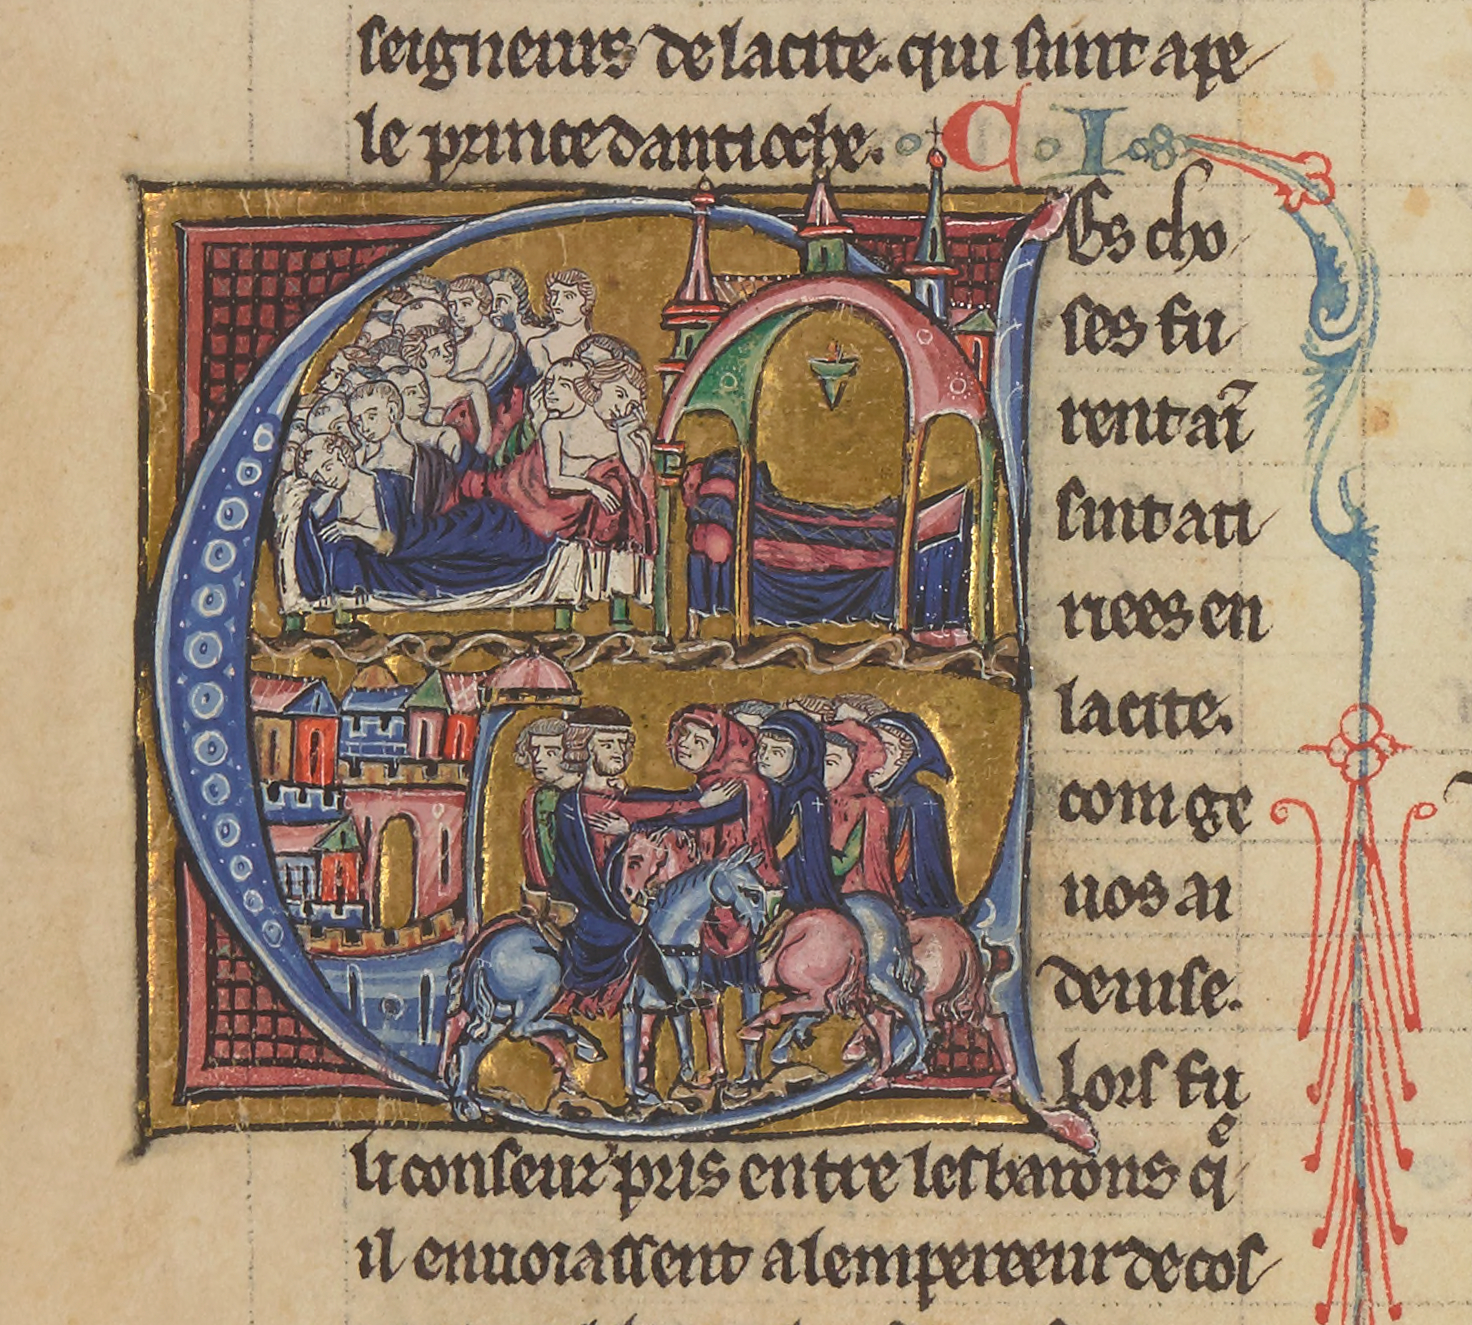 seigneurs de la cite. qui sunt ape
le prince dantioche. C I
Es cho
ses fu
rent aĩ
sint ati
riees en
la cite.
com ge
uos ai
deuise.
lors fu
li conseuz pris entre les barons qͤ
il enuoiassent a lempereeur de cos